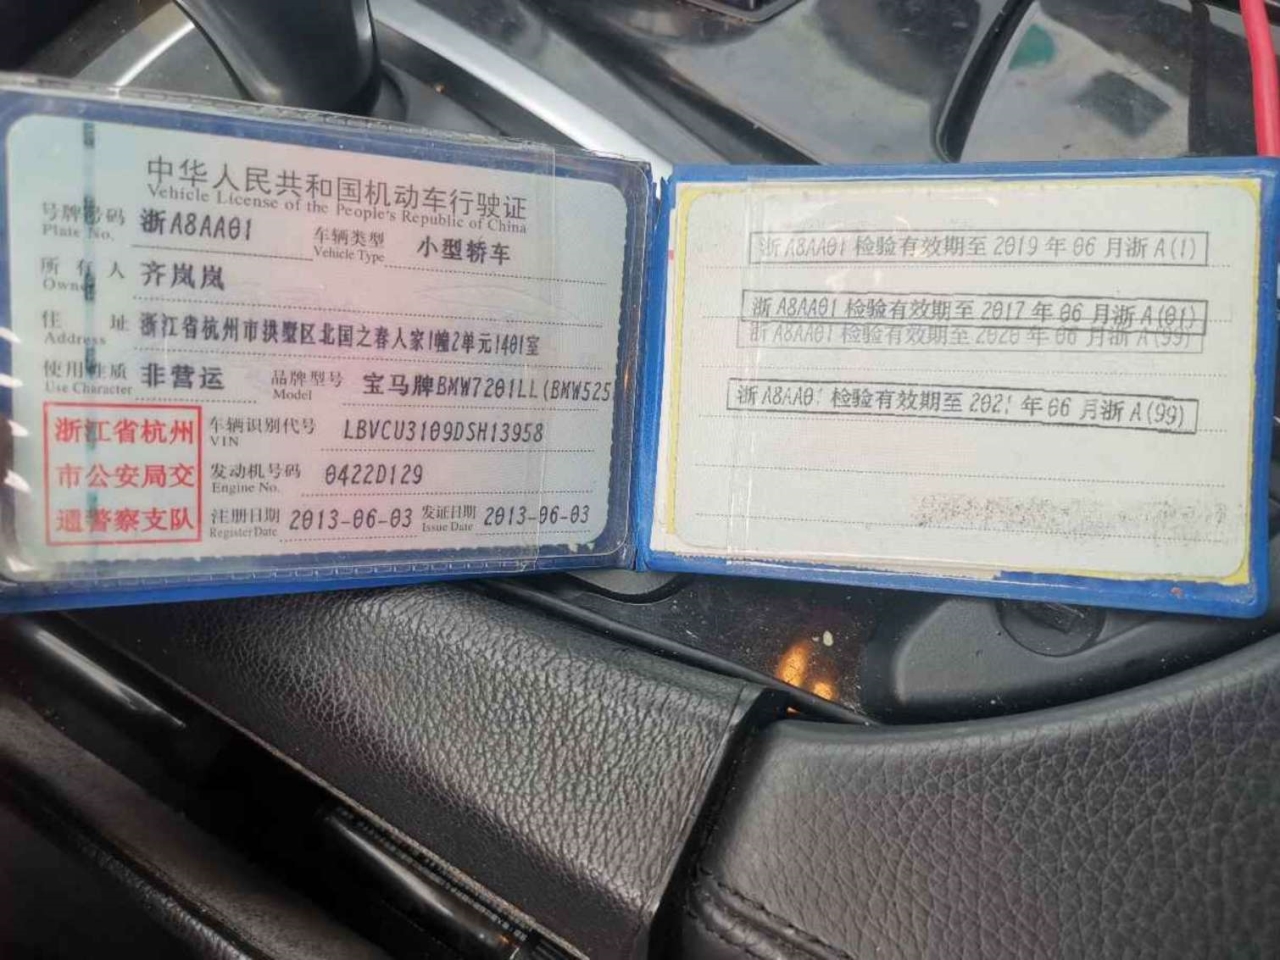 中华人民共和国机动车行驶证
Vehicle License of the People's Republic of China
号牌号码 浙A8AA01 车辆类型 小型轿车
Plate No. Vehicle Type
所有人 齐岚岚
Owner
住址 浙江省杭州市拱墅区北国之春人家1幢2单元1401室
Address
使用性质 非营运 品牌型号 宝马牌BMW7201LL(BMW525
Use Character Model
浙江省杭州
市公安局交
通警察支队
车辆识别代号 LBVCU3109DSH13958
VIN
发动机号码 0422D129
Engine No.
注册日期 2013-06-03 发证日期 2013-06-03
Register Date Issue Date
浙A8AA01 检验有效期至 2019 年 06 月浙 A(1)
浙 A8AA01 检验有效期至 2017 年 06 月浙 A(01)
浙 A8AA01 检验有效期至 2020 年 06 月浙 A(99)
浙 A8AA01 检验有效期至 2021 年 06 月浙 A(99)